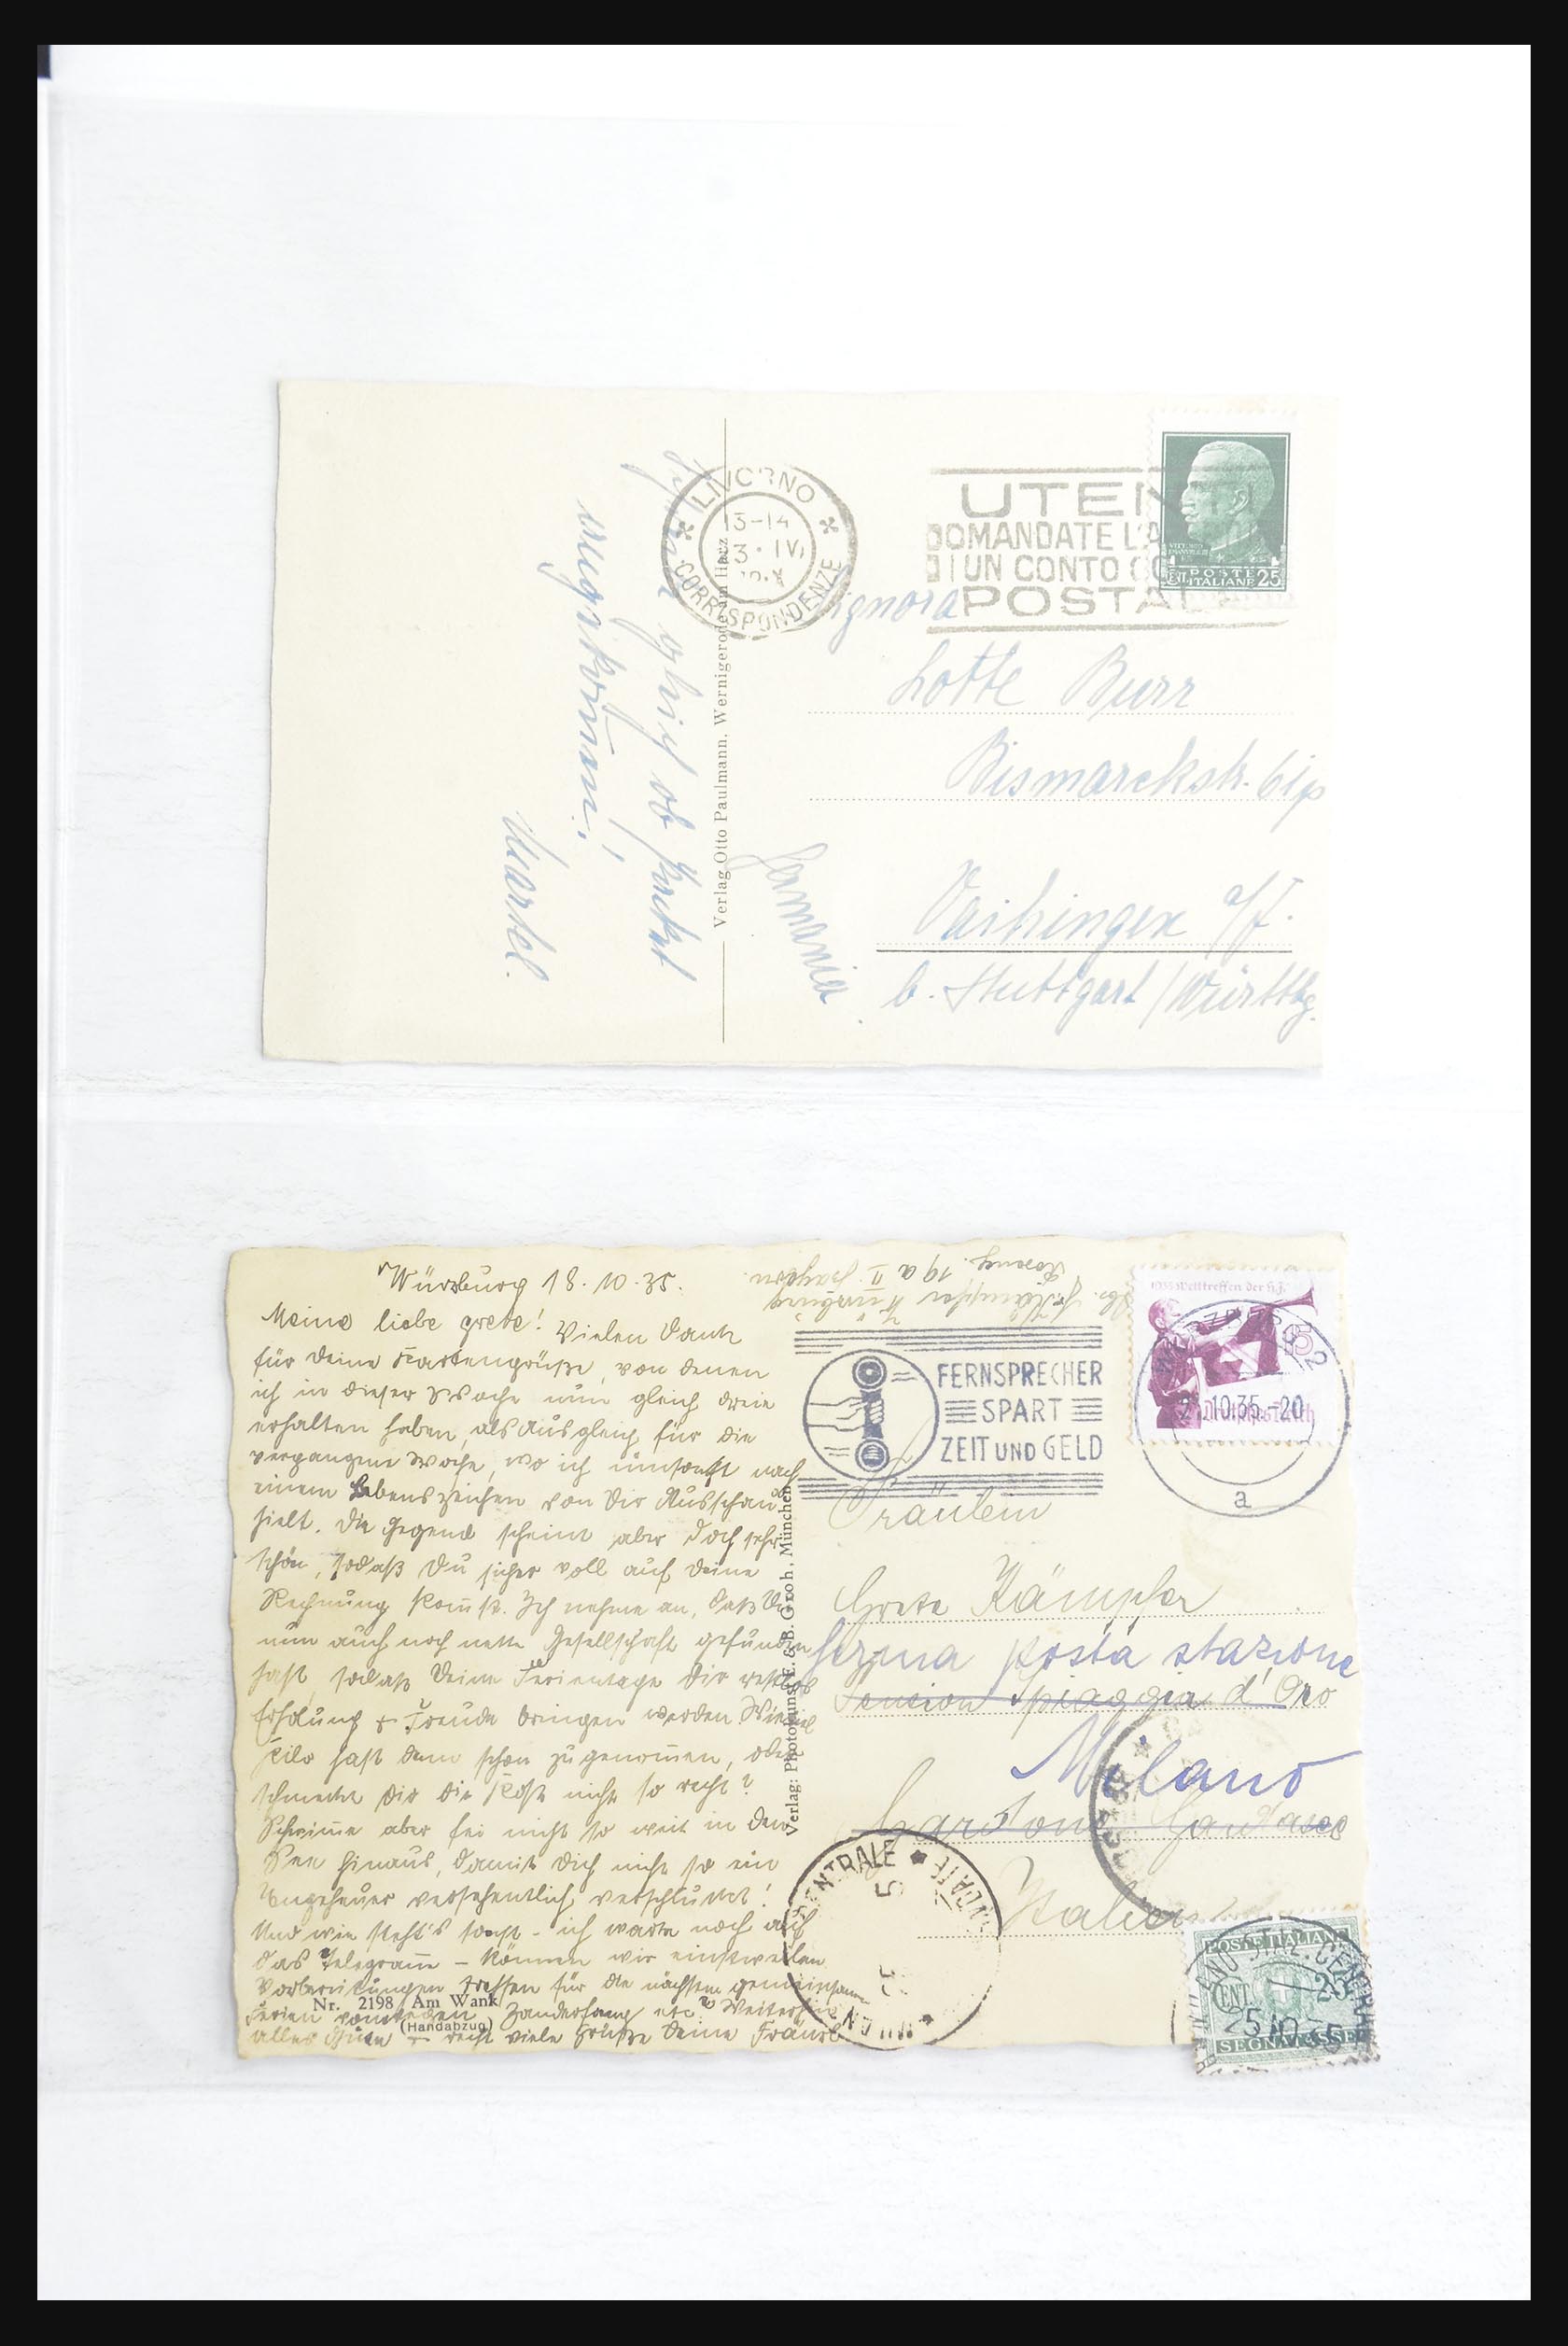 LIVORNO
13-14
3 · IV
CORRISPONDENZE
UTENTI
DOMANDATE L'A
DI UN CONTO CO
POSTAL
POSTE
ITALIANE
CENT. 25
Signora
Lotte Burr
Bismarckstr. 61
Vaihingen a/F.
b. Stuttgart / Württbg.
Germania
gleich ob Paket
angekommen!
Marcel.
Verlag Otto Paulmann, Wernigerode am Harz
Würzburg 18. 10. 35.
Meine liebe Grete! Vielen Dank
für Deine Kartengrüße, von denen
ich in dieser Woche nun gleich dreie
erhalten habe, als Ausgleich für die
vergangene Woche, wo ich umsonst nach
einem Lebenszeichen von Dir Ausschau
hielt. Die Gegend scheint aber doch sehr
schön, sodaß Du sicher voll auf Deine
Rechnung kom̄st. Ich nehme an, daß Du
nun auch noch nette Gesellschaft gefunden
hast, sodaß Deine Ferientage Dir restlos
Erholung + Freude bringen werden. Wieviel
Kilo hast denn schon zugenom̄en, oder
schmeckt Dir die Kost nicht so recht?
Schwim̄e aber fei nicht so weit in den
See hinaus, damit Dich nicht so ein
Ungeheuer versehentlich verschluckt!
Und wie steht's sonst - ich warte noch auf
das Telegram̄ - Können wir einstweilen
Vorbereitungen treffen für die nächsten gemeinsamen
Ferien etc? Weiterhin
alles Gute + recht viele Grüße Deine
Nr. 2198 Am Wank
(Handabzug)
Verlag: Photokunst E. & B. Groh, München
Würzburg
19 a II
FERNSPRECHER
SPART
ZEIT UND GELD
1935 Welttreffen der H.J.
15
Deutsches Reich
10.35.-20
a
Fräulein
Grete Kämpfer
ferma posta stazione
Pension Spiaggia d'Oro
Milano
Gardone Gardasee
Italien
CENTRALE
5
POSTE ITALIANE
CENT. 25
SEGNATASSE
CENTRALE